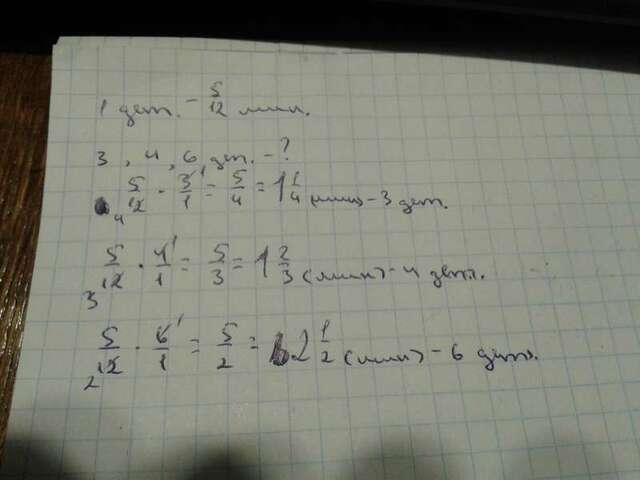 1 дет. - 5/12 мин.
3, 4, 6 дет. - ?
5/12 · 3/1 = 5/4 = 1 1/4 (мин) - 3 дет.
4 1
5/12 · 4/1 = 5/3 = 1 2/3 (мин) - 4 дет.
3 1
5/12 · 6/1 = 5/2 = 2 1/2 (мин) - 6 дет.
2 1